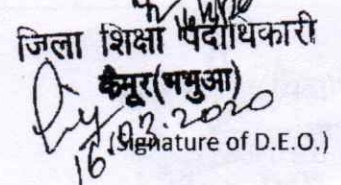 जिला शिक्षा पदाधिकारी
कैमूर(भभुआ)
16.03.2020
(Signature of D.E.O.)